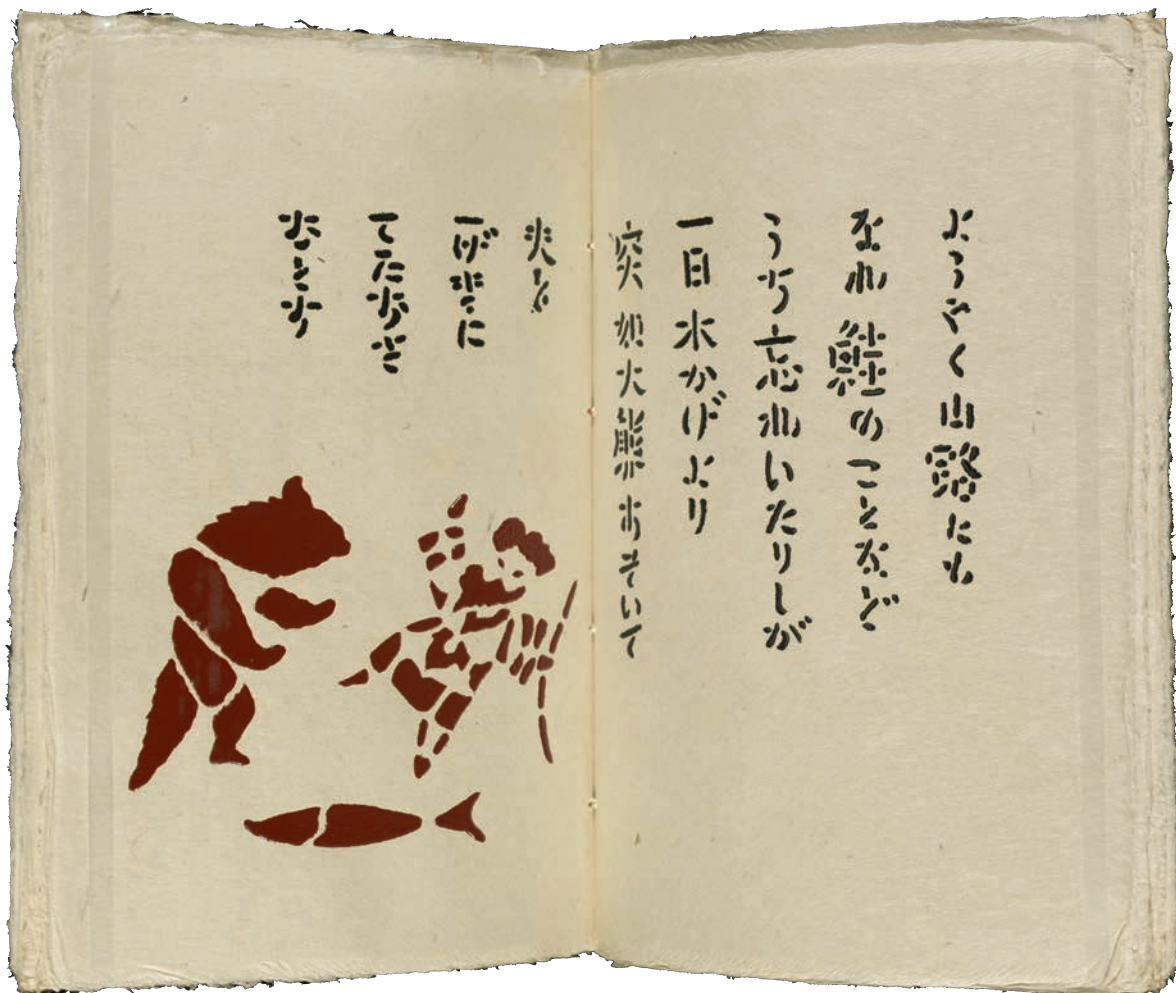 ようやく山路にも
なれ 鮭のことなど
うち忘れいたりしが
一日 木かげより
突如大熊おそいて
夫を
一げきに